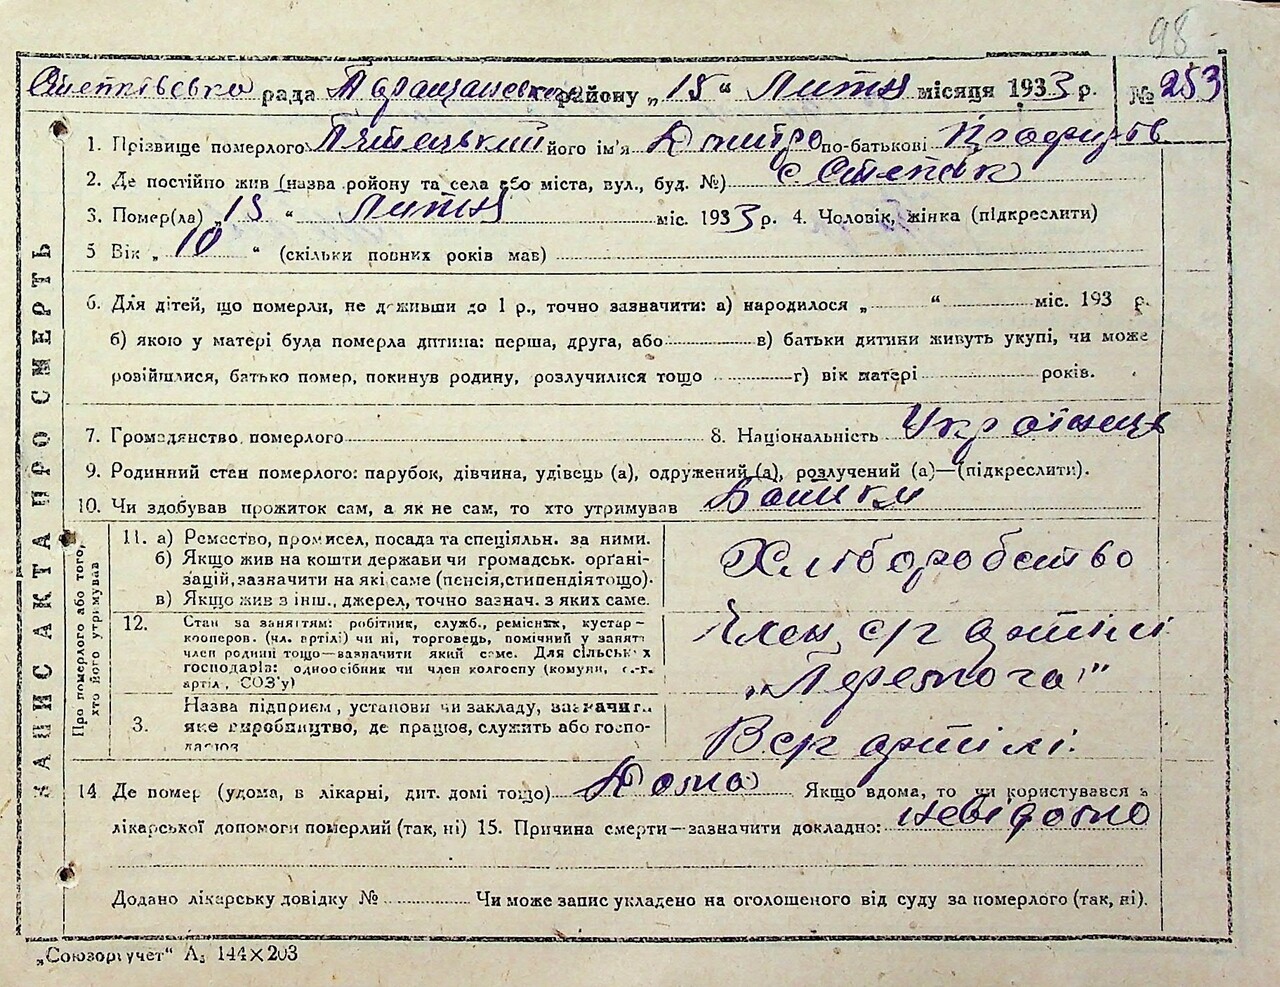 98
рада Таращанського району „15“ Лютня місяця 1933 р. № 253
1. Прізвище померлого його ім'я Дмитро по-батькові
2. Де постійно жив (назва району та села або міста, вул., буд. №) с.
3. Помер(ла) „15“ Лютня міс. 1933 р. 4. Чоловік, жінка (підкреслити)
5 Вік „10“ (скільки повних років мав)
6. Для дітей, що померли, не доживши до 1 р., точно зазначити: а) народилося „ “ міс. 193 р.
б) якою у матері була померла дитина: перша, друга, або в) батьки дитини живуть укупі, чи може
розійшлися, батько помер, покинув родину, розлучилися тощо г) вік матері років.
7. Громадянство померлого 8. Національність Українець
9. Родинний стан померлого: парубок, дівчина, удівець (а), одружений (а), розлучений (а)—(підкреслити).
10. Чи здобував прожиток сам, а як не сам, то хто утримував Батьки
ЗАПИС АКТА ПРО СМЕРТЬ
Про померлого або того, хто його утримував
11. а) Ремество, промисел, посада та спеціяльн. за ними.
б) Якщо жив на кошти держави чи громадськ. орґані-
зацій, зазначити на які саме (пенсія, стипендія тощо).
в) Якщо жив з інш., джерел, точно зазнач. з яких саме.
Хліборобство
12. Стан за заняттям: робітник, служб., ремісник, кустар-
кооперов. (чл. артілі) чи ні, торговець, помічний у занятт
член родини тощо—зазначити який саме. Для сільськ х
господарів: одноосібник чи член колгоспу (комуни, с.-г.
артіл, СОЗ'у)
Член с/г артілі
„Перемога"
3. Назва підприєм, установи чи закладу, зазначит.
яке виробництво, де працює, служить або госпо-
дарює
В с/г артілі.
14 Де помер (удома, в лікарні, дит. домі тощо) Дома Якщо вдома, то чи користувався з
лікарської допомоги померлий (так, ні) 15. Причина смерти—зазначити докладно: невідомо
Додано лікарську довідку № Чи може запис укладено на оголошеного від суду за померлого (так, ні).
„Союзоргучет“ А5 144×203